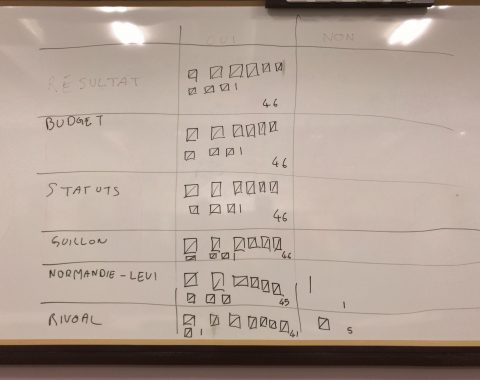 OUI NON
RÉSULTAT
46
BUDGET
46
STATUTS
46
GUILLON 46
NORMANDIE-LEVI 45 1
RIVOAL 41 5